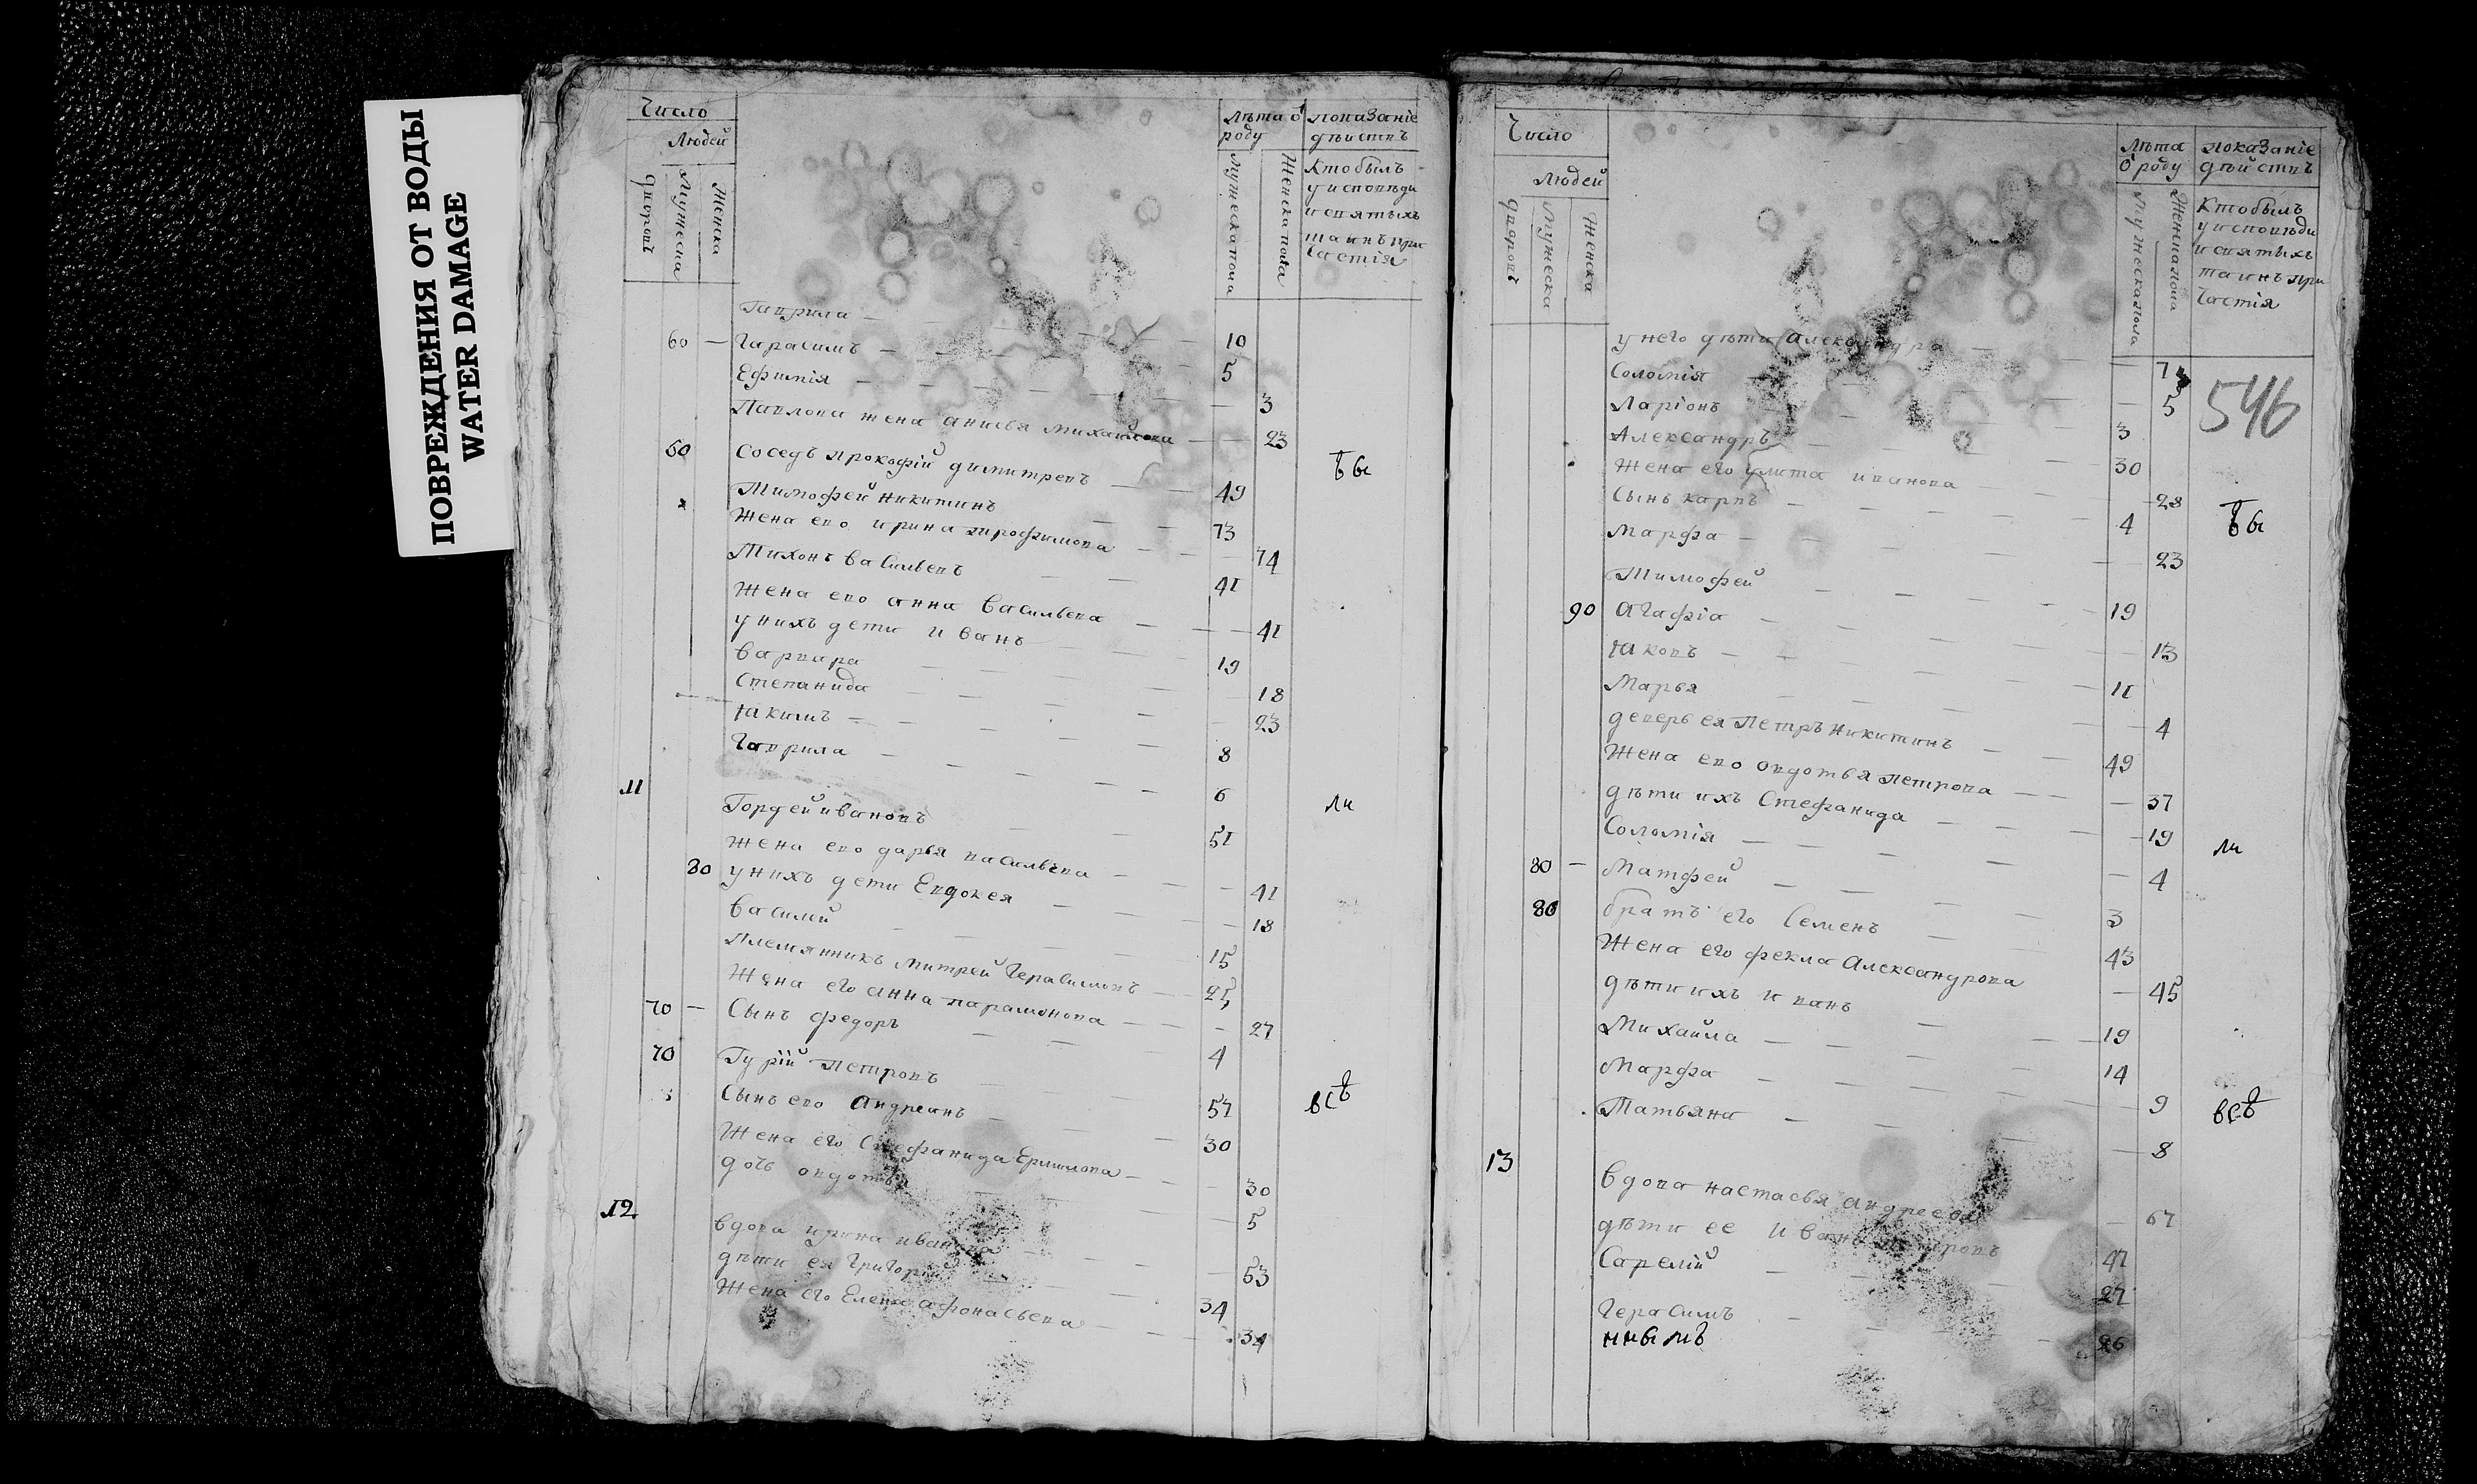 ПОВРЕЖДЕНИЯ ОТ ВОДЫ
WATER DAMAGE
Число
Людей
дворовъ
Мужеска
Женска
лѣта ѿ роду
мужеска пола
женска пола
показаніе дѣиствъ
Кто былъ
у исповѣди
и святыхъ
таинъ при
частія
Гаврила 10
60 Гарасимъ 5
Ефимія 3
Павлова жена анисья михайлова 23
50 Соседъ прокофій димитревъ 49
ѣ бы
Тимофей никитинъ 73
Жена ево ирина трофимова 74
Тихонъ василвевъ 41
Жена ево анна василвева 41
у нихъ дети иванъ 19
варвара 18
Степанида 23
Іакимъ 8
Гаврила 6
11
ли
Гордей ивановъ 51
Жена ево дарья василвева 41
80 у нихъ дети Евдокея 18
василей 15
племянникъ митрей Герасимовъ 25
Жена его анна парамонова 27
70 Сынъ федоръ 4
70 Гурій петровъ 57
всѣ
Сынъ ево андреанъ 30
Жена его Стефанида Ермилова 30
дочь овдотья 5
12
вдова ирина иванова 53
дѣти ея Григорій 34
Жена его Елена афонасьева 34
Число
Людей
дворовъ
Мужеска
Женска
лѣта ѿ роду
мужеска пола
женска пола
показаніе дѣйствъ
Кто былъ
у исповѣди
и святыхъ
таинъ при
частія
546
у него дѣти александра 7
Соломія 5
Ларіонъ 3
Александръ 30
Жена его улита иванова 28
Сынъ карпъ 4
ѣ бы
Марфа 23
Тимофей 19
90 Агафіа 13
Іаковъ 11
Марья 4
деверь ея Петръ никитинъ 49
Жена ево овдотья петрова 37
дѣти ихъ Стефанида 19
ли
Соломія 4
80 Матфей 3
80 братъ его Семенъ 43
Жена его фекла Александрова 45
дѣти ихъ иванъ 19
Михайла 14
Марфа 9
всѣ
Татьяна 8
13
Вдова настасья андреева 67
дѣти ее иванъ 47
Сарелій 27
Герасимъ 26
ннымъ